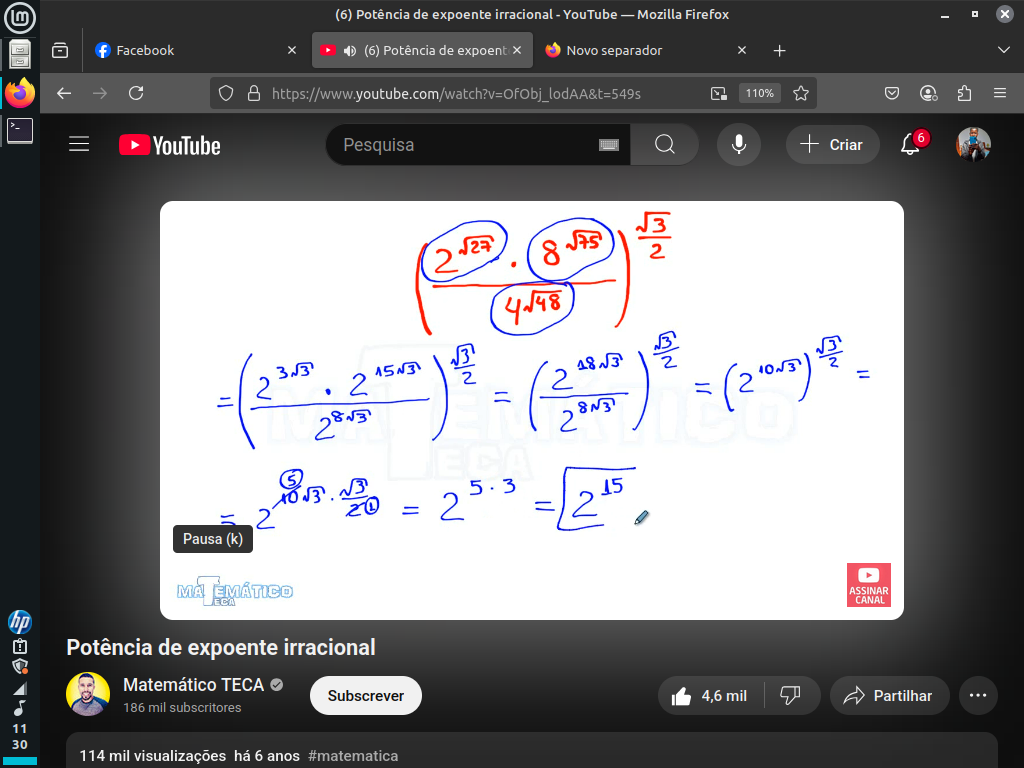 (6) Potência de expoente irracional - YouTube — Mozilla Firefox
Facebook
(6) Potência de expoent
Novo separador
https://www.youtube.com/watch?v=OfObj_lodAA&t=549s
110%
YouTube
Pesquisa
Criar
6
(2^√27 · 8^√75 / 4^√48)^(√3/2)
= (2^(3√3) · 2^(15√3) / 2^(8√3))^(√3/2) = (2^(18√3) / 2^(8√3))^(√3/2) = (2^(10√3))^(√3/2) =
= 2^(10√3 · √3/2) 5 1 = 2^(5·3) = 2^15
MATEMÁTICO
TECA
Pausa (k)
MATEMÁTICO
TECA
ASSINAR
CANAL
Potência de expoente irracional
Matemático TECA
186 mil subscritores
Subscrever
4,6 mil
Partilhar
114 mil visualizações há 6 anos #matematica
hp
11
30